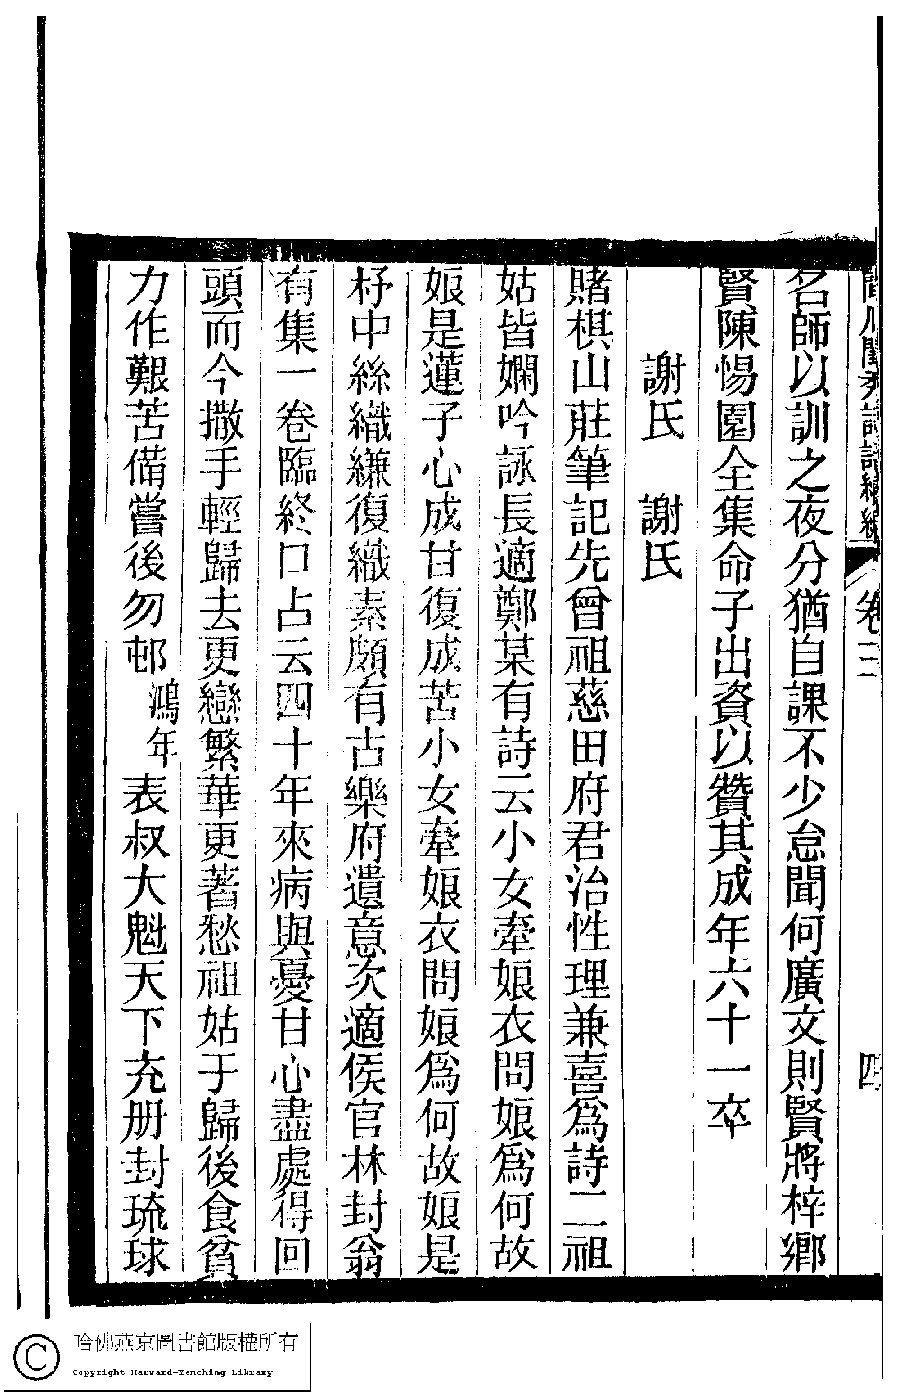 閩川閨秀詩話續編 卷三 四
名師以訓之夜分猶自課不少怠聞何廣文則賢將梓鄉
賢陳惕園全集命子出資以贊其成年六十一卒
謝氏 謝氏
賭棋山莊筆記先曾祖慈田府君治性理兼喜爲詩二祖
姑皆嫻吟詠長適鄭某有詩云小女牽娘衣問娘爲何故
娘是蓮子心成甘復成苦小女牽娘衣問娘爲何故娘是
杼中絲織縑復織素頗有古樂府遺意次適侯官林封翁
有集一卷臨終口占云四十年來病與憂甘心盡處得回
頭而今撒手輕歸去更戀繁華更著愁祖姑于歸後食貧
力作艱苦備嘗後勿邨鴻年表叔大魁天下充册封琉球
哈佛燕京圖書館版權所有
Copyright Harvard-Yenching Library